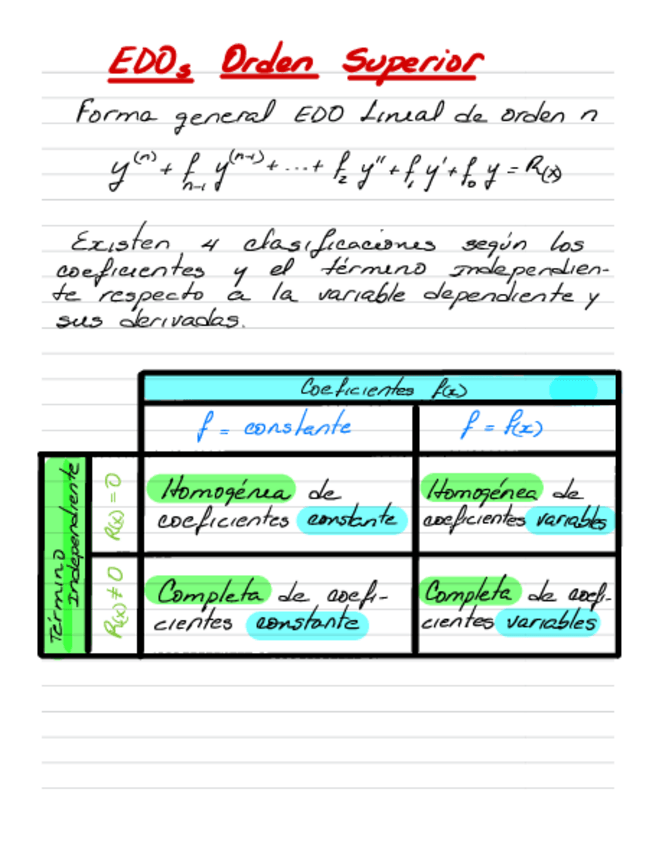 EDOs Orden Superior
Forma general EDO Lineal de orden n
y⁽ⁿ⁾ + fₙ₋₁ y⁽ⁿ⁻¹⁾ + ... + f₂ y'' + f₁ y' + f₀ y = R(x)
Existen 4 clasificaciones según los
coeficientes y el término Independien-
te respecto a la variable dependiente y
sus derivadas.
Coeficientes f(x)
f = constante
f = f(x)
Término
Independiente
R(x) = 0
Homogénea de
coeficientes constante
Homogénea de
coeficientes variables
R(x) ≠ 0
Completa de coefi-
cientes constante
Completa de coefi-
cientes variables